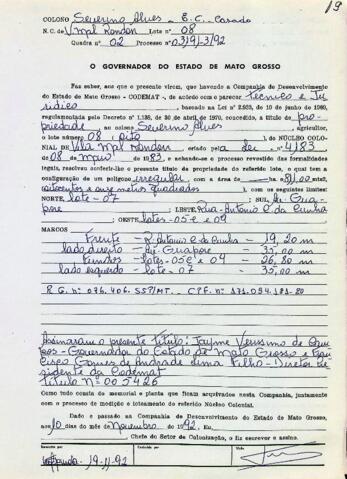 19
COLONO Severino Alves - E.C. Casado
N. C. de V. Mal. Rondon Lote n.º 08
Quadra n.º 02 Processo n.º
O GOVERNADOR DO ESTADO DE MATO GROSSO
Faz saber, aos que o presente virem, que havendo a Companhia de Desenvolvimento
do Estado de Mato Grosso - CODEMAT -, de acordo com o parecer, técnico e Ju
rídico, baseado na Lei de 10 de junho de
regulamentada pelo Decreto n.º de 30 de abril de 1970, concedido, a título de pro
priedade ao colono Severino Alves, agricultor,
o lote número 08 (oito) do NÚCLEO COLO-
NIAL DE Vila Mal. Rondon, criado pela Lei 4183
de 08 de maio de e achando-se o processo revestido das formalidades
legais, resolveu conferir-lhe o presente título de propriedade do referido lote, o qual tem a
configuração de um polígono irregular com a área de
oitocentos e onze metros quadrados, com os seguintes limites:
NORTE lote - 07; SUL Av. Gua-
poré; LESTE Rua - Antonio C. da Cunha
OESTE lotes - 05 e 09
MARCOS
Frente - R. Antonio C. da Cunha - 19,20 m
lado direito - Av. Guaporé - 35,00 m
Fundos - lotes - 05 e 09 - 26,80 m
lado esquerdo - lote - 07 - 35,00 m
R.G. nº 076.406. SSP/MT. CPF. nº 171.054.181-20
Assinaram o presente Título: Jayme Verissimo de Cam
pos - Governador do Estado de Mato Grosso e Fran
cisco Gomes de Andrade Lima Filho - Diretor Pre
sidente da Codemat
Título Nº 005426
Como tudo consta do memorial e planta que ficam arquivados nesta Companhia, juntamente
com o processo de medição e loteamento do referido Núcleo Colonial.
Dado e passado na Companhia de Desenvolvimento do Estado de Mato Grosso,
aos 10 dias do mês de Novembro de 1992. Eu,
Chefe do Setor de Colonização, o fiz escrever e assino.
19-11-92